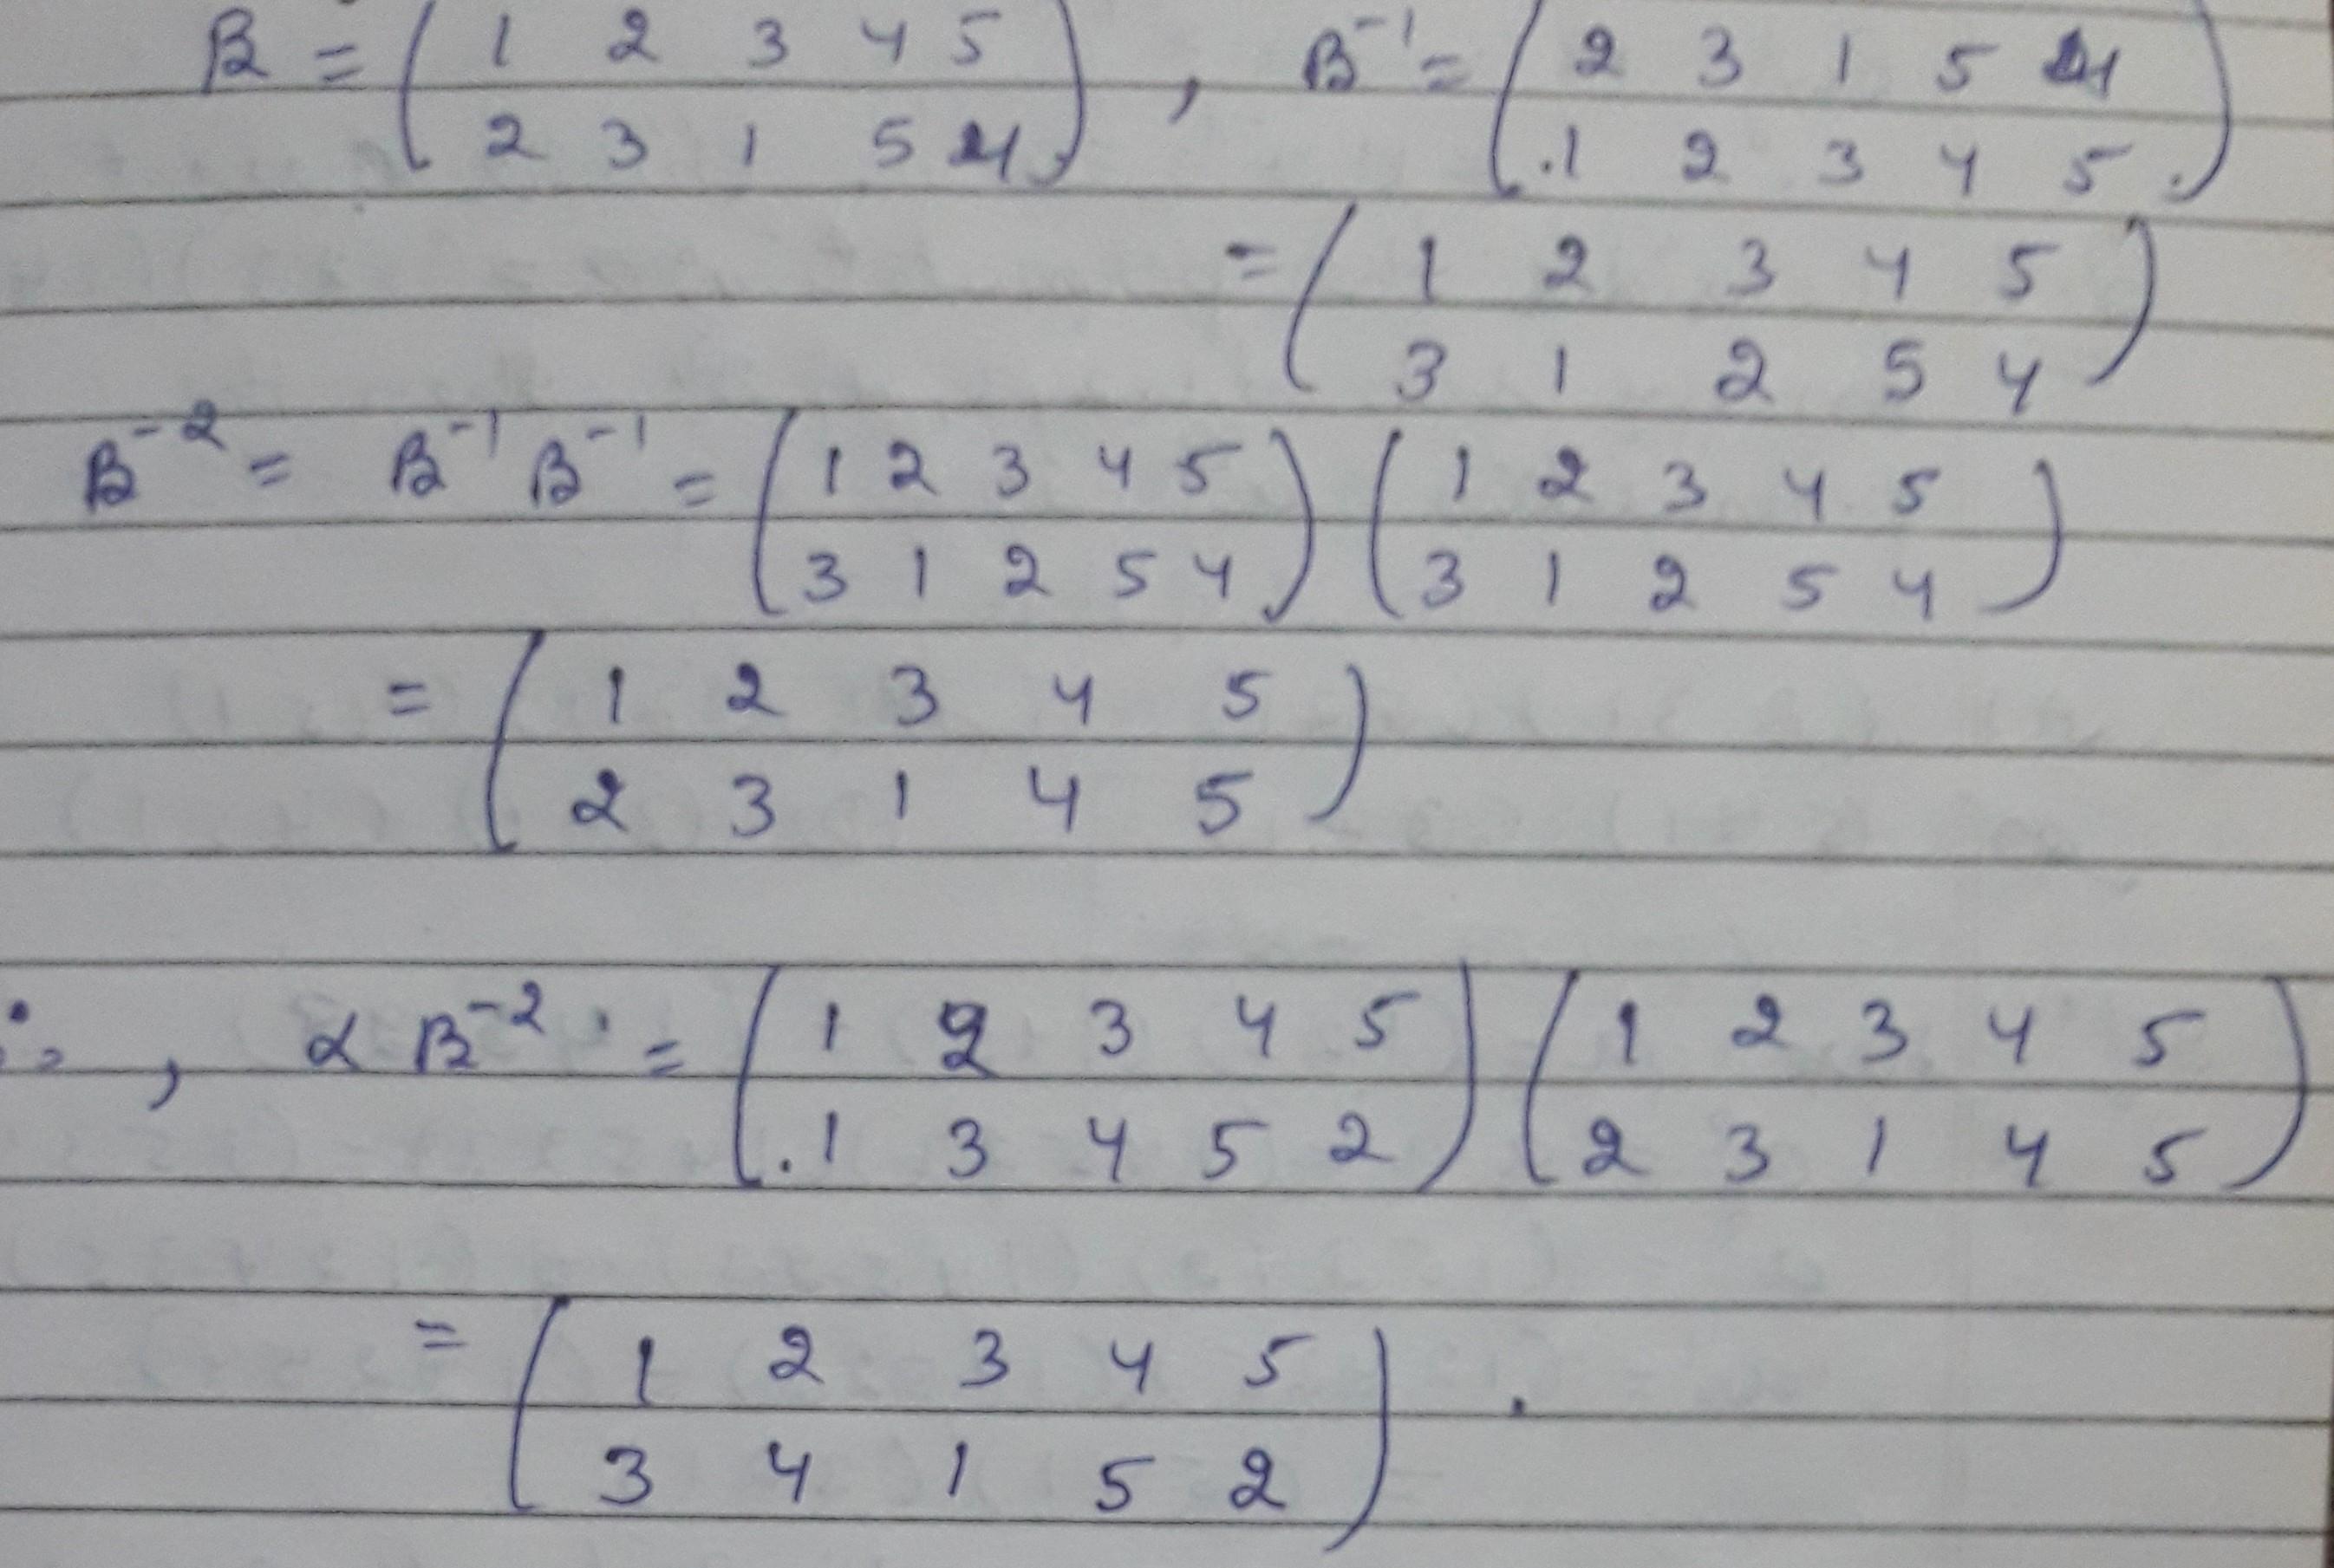 β = ( 1 2 3 4 5 ) , β⁻¹ = ( 2 3 1 5 4 )
( 2 3 1 5 4 ) ( 1 2 3 4 5 )
= ( 1 2 3 4 5 )
( 3 1 2 5 4 )
β⁻² = β⁻¹ β⁻¹ = ( 1 2 3 4 5 ) ( 1 2 3 4 5 )
( 3 1 2 5 4 ) ( 3 1 2 5 4 )
= ( 1 2 3 4 5 )
( 2 3 1 4 5 )
∴ , α β⁻² = ( 1 2 3 4 5 ) ( 1 2 3 4 5 )
( 1 3 4 5 2 ) ( 2 3 1 4 5 )
= ( 1 2 3 4 5 ) .
( 3 4 1 5 2 )